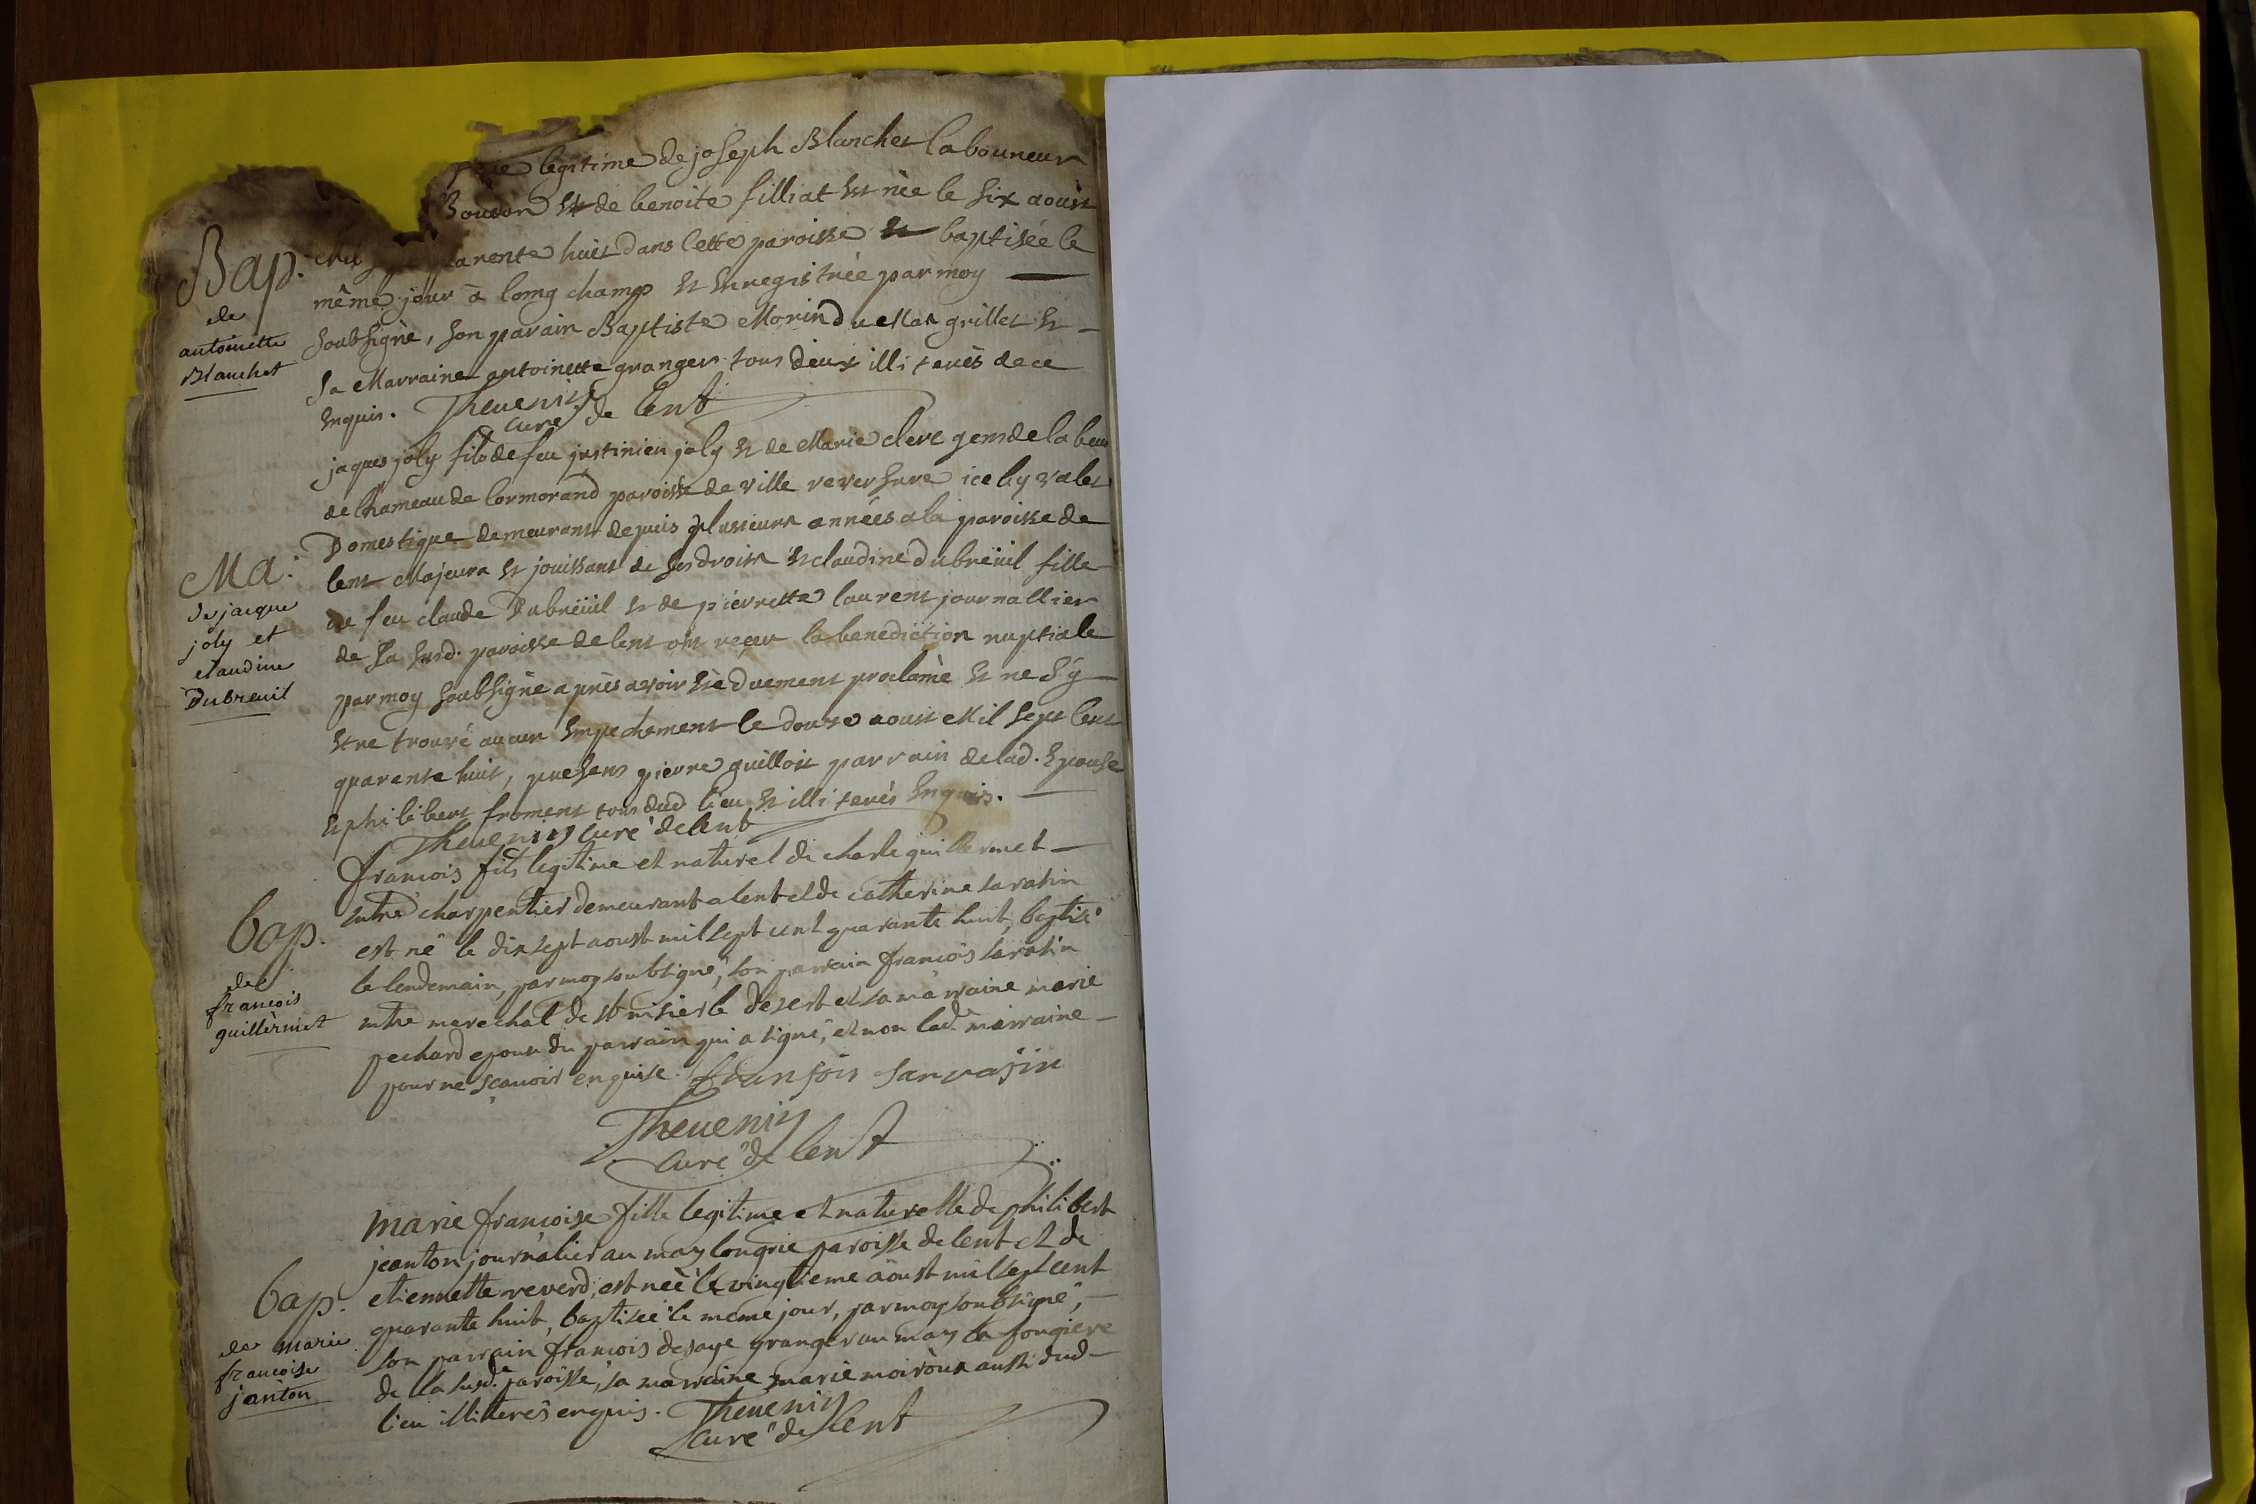 legitime de joseph Blanchet laboureur
Bouvon et de benoite filliat est née le six aoust
quarente huit dans cette paroisse et baptisée le
même jour a long champ et enregistrée par moy
soubsigné, son parain Baptiste Morin du Mas grillet et
sa Marraine antoinette granger tous deux illiterés de ce
enquis. Thevenin
curé de lent
Bap.
de
antoinette
Blanchet
jaques joly fils de feu justinien joly et de Marie clerc gens de labeur
de lhameau de Cormorand paroisse de ville reversure icely valet
Domestique demeurant depuis plusieurs années a la paroisse de
lent Majeurs et jouissant de ses droits et claudine dubreüil fille
de feu claude Dubreüil et de pierrette laurent journallier
de la susd. paroisse de lent ont reçeu la benediction nuptiale
par moy soubsigné après avoir été duement proclamé et ne s'y
etre trouvé aucun empechement le douze aoust Mil sept cent
quarente huit, presens pierre guilloit parrain de lad. Epouse
et philibert froment tous dud lieu et illiterés enquis.
Thevenin curé de lent
Ma.
De jacque
joly et
claudine
Dubreuil
francois fils legitime et naturel de charle guillermet
mtre charpentier demeurant a lent et de catherine saratin
est né le dix sept aoust mil sept cent quarante huit, baptisé
le lendemain, par moy soubsigné, son parrain francois saratin
mtre marechal de st nisier le desert et sa marraine marie
pechard epouse du parrain qui a signé, et non lade marraine
pour ne scavoir enquise. fransois sarrasin
Thevenin
curé de lent
bap.
de
francois
guillermet
marie francoise fille legitime et naturelle de philibert
jeanton journalier au may longrie paroisse de lent et de
etiennette reverd, est née le vingtieme aoust mil sept cent
quarante huit, baptisée le meme jour, par moy soubsigné,
son parrain francois desaye granger au may la fongiere
de la susde paroisse, sa marraine marie moiroux aussi dud
lieu illiteres enquis. Thevenin
curé de lent
bap.
de marie
francoise
janton